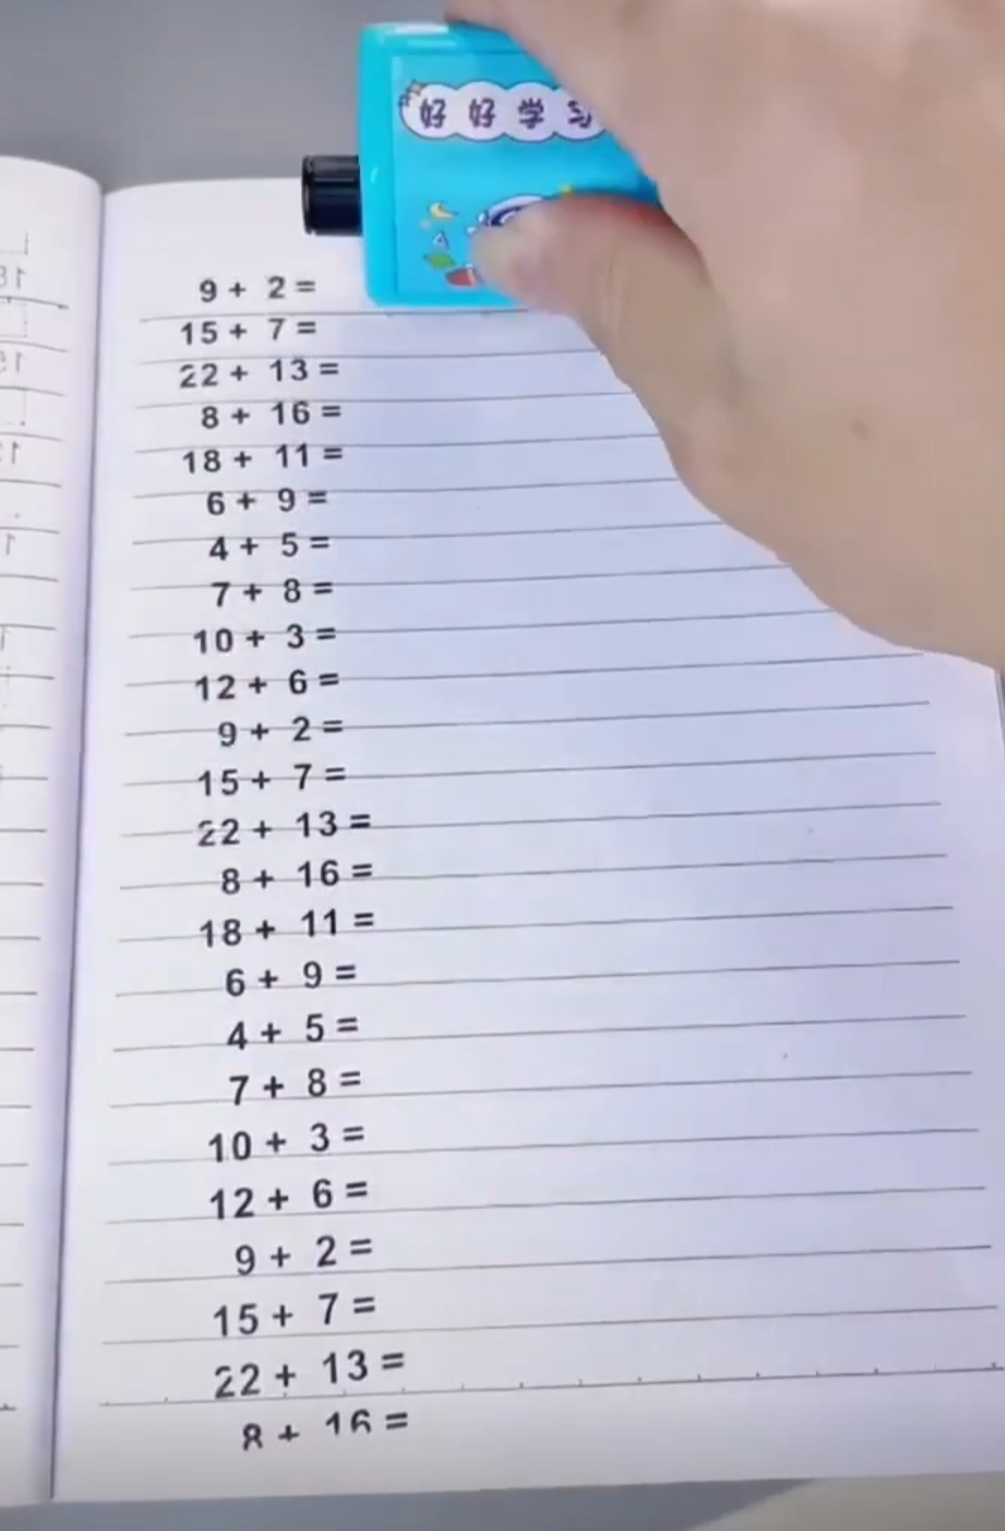 好好学习
9 + 2 =
15 + 7 =
22 + 13 =
8 + 16 =
18 + 11 =
6 + 9 =
4 + 5 =
7 + 8 =
10 + 3 =
12 + 6 =
9 + 2 =
15 + 7 =
22 + 13 =
8 + 16 =
18 + 11 =
6 + 9 =
4 + 5 =
7 + 8 =
10 + 3 =
12 + 6 =
9 + 2 =
15 + 7 =
22 + 13 =
8 + 16 =